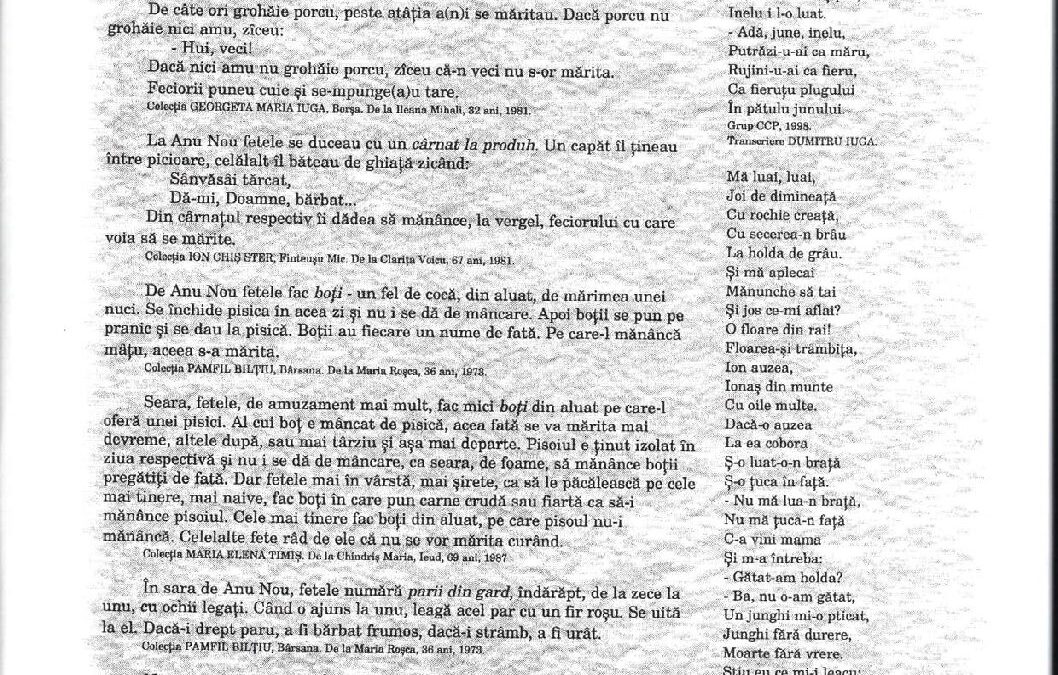 De câte ori grohăie porcu, peste atâția a(n)i se măritau. Dacă porcu nu
grohăie nici amu, zîceu:
- Hui, veci!
Dacă nici amu nu grohăie porcu, zîceu că-n veci nu s-or mărita.
Feciorii puneu cuie și se-mpunge(a)u tare.
Colecția GEORGETA MARIA IUGA, Borșa. De la Ileana Mihali, 32 ani, 1981.
La Anu Nou fetele se duceau cu un cârnat la produh. Un capăt îl țineau
între picioare, celălalt îl băteau de ghiață zicând:
Sânvăsâi tărcat,
Dă-mi, Doamne, bărbat...
Din cârnațul respectiv îi dădea să mănânce, la vergel, feciorului cu care
voia să se mărite.
Colecția ION CHIȘ ȘTER, Finteușu Mic. De la Clarița Voicu, 67 ani, 1981.
De Anu Nou fetele fac boți - un fel de cocă, din aluat, de mărimea unei
nuci. Se închide pisica în acea zi și nu i se dă de mâncare. Apoi boții se pun pe
pranic și se dau la pisică. Boții au fiecare un nume de fată. Pe care-l mănâncă
mâțu, aceea s-a mărita.
Colecția PAMFIL BILȚIU, Bârsana. De la Maria Roșca, 36 ani, 1973.
Seara, fetele, de amuzament mai mult, fac mici boți din aluat pe care-l
oferă unei pisici. Al cui boț e mâncat de pisică, acea fată se va mărita mai
devreme, altele după, sau mai târziu și așa mai departe. Pisoiul e ținut izolat în
ziua respectivă și nu i se dă de mâncare, ca seara, de foame, să mănânce boții
pregătiți de fată. Dar fetele mai în vârstă, mai șirete, ca să le păcălească pe cele
mai tinere, mai naive, fac boți în care pun carne crudă sau fiartă ca să-i
mănânce pisoiul. Cele mai tinere fac boți din aluat, pe care pisoul nu-i
mănâncă. Celelalte fete râd de ele că nu se vor mărita curând.
Colecția MARIA ELENA TIMIȘ. De la Chindriș Maria, Ieud, 69 ani, 1987
În sara de Anu Nou, fetele numără parii din gard, îndărăpt, de la zece la
unu, cu ochii legați. Când o ajuns la unu, leagă acel par cu un fir roșu. Se uită
la el. Dacă-i drept paru, a fi bărbat frumos, dacă-i strâmb, a fi urât.
Colecția PAMFIL BILȚIU, Bârsana. De la Maria Roșca, 36 ani, 1973
Inelu i l-o luat.
- Adă, june, inelu,
Putrăzi-u-ai ca măru,
Rujini-u-ai ca fieru,
Ca fieruțu plugului
În pătulu junului.
Grup CCP, 1998.
Transcriere DUMITRU IUGA.
Mă luai, luai,
Joi de dimineață
Cu rochie creață,
Cu secerea-n brâu
La holda de grâu.
Și mă aplecai
Mănunche să tai
Și jos ce-mi aflat?
O floare din rai!
Floarea-și trâmbița,
Ion auzea,
Ionaș din munte
Cu oile multe.
Dacă-o auzea
La ea cobora
Ș-o luat-o-n brață
Ș-o țuca în față.
- Nu mă lua-n brață,
Nu mă țuca-n față
C-a vini mama
Și m-a întreba:
- Gătat-am holda?
- Ba, nu o-am gătat,
Un junghi mi-o pticat,
Junghi fără durere,
Moarte fără vrere.
Știu eu ce mi-i leacu: